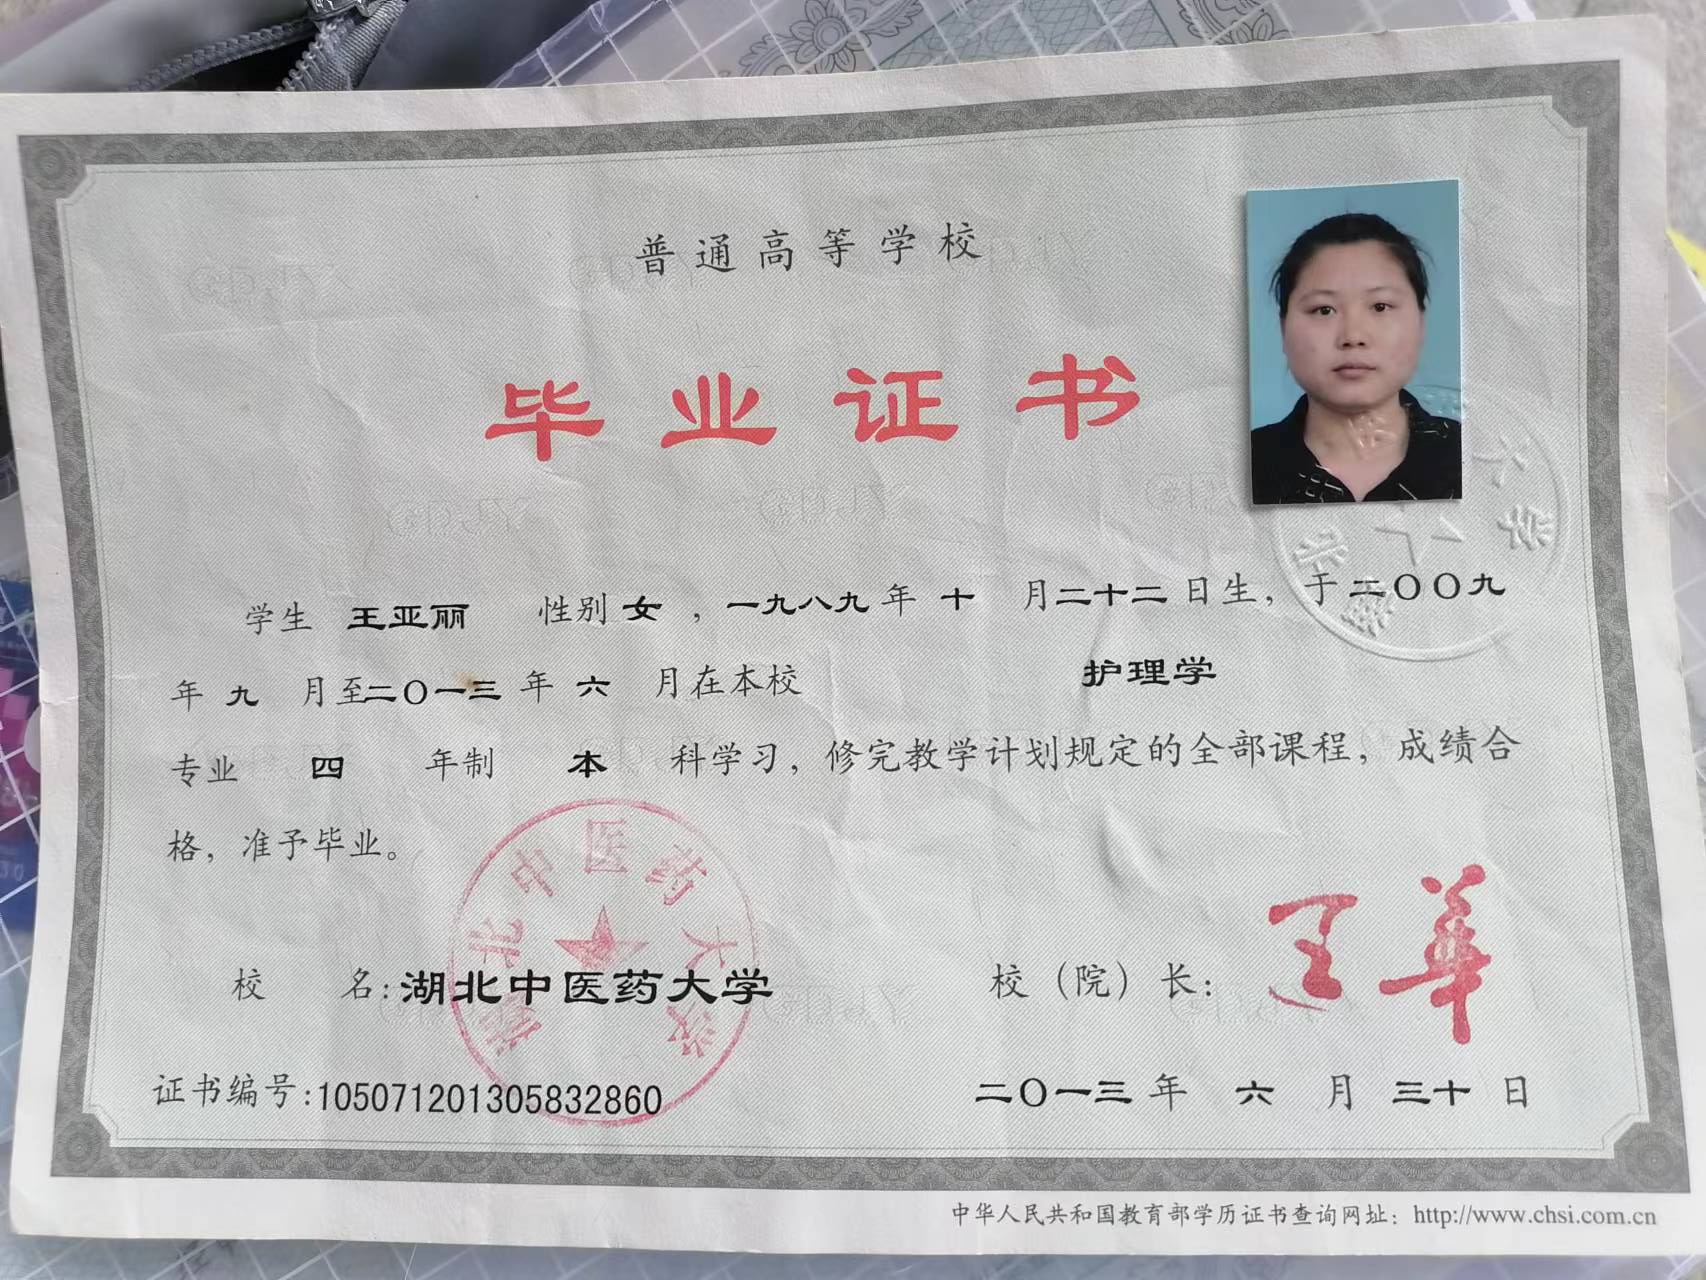 普通高等学校
毕业证书
学生 王亚丽 性别 女 ，一九八九年 十 月二十二日生，于二〇〇九
年 九 月至二〇一三年 六 月在本校 护理学
专业 四 年制 本 科学习，修完教学计划规定的全部课程，成绩合
格，准予毕业。
湖北中医药大学
校 名:湖北中医药大学 校（院）长: 王华
证书编号:105071201305832860 二〇一三年 六 月 三十 日
中华人民共和国教育部学历证书查询网址：http://www.chsi.com.cn